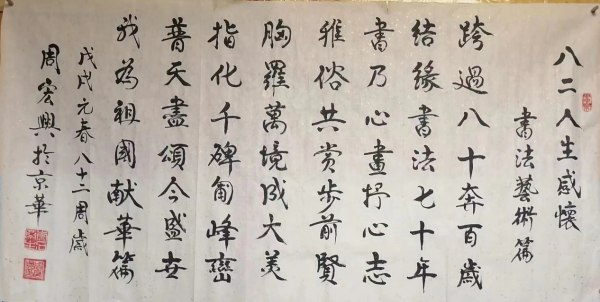 八二人生感懷
書法藝術篇
跨過八十奔百歲
結緣書法七十年
書乃心畫抒心志
雅俗共赏步前賢
胸羅萬境成大美
指化千碑匐峰巒
普天盡頌今盛世
我為祖國献華篇
戊戌元春八十二周歲
周宏興於京華